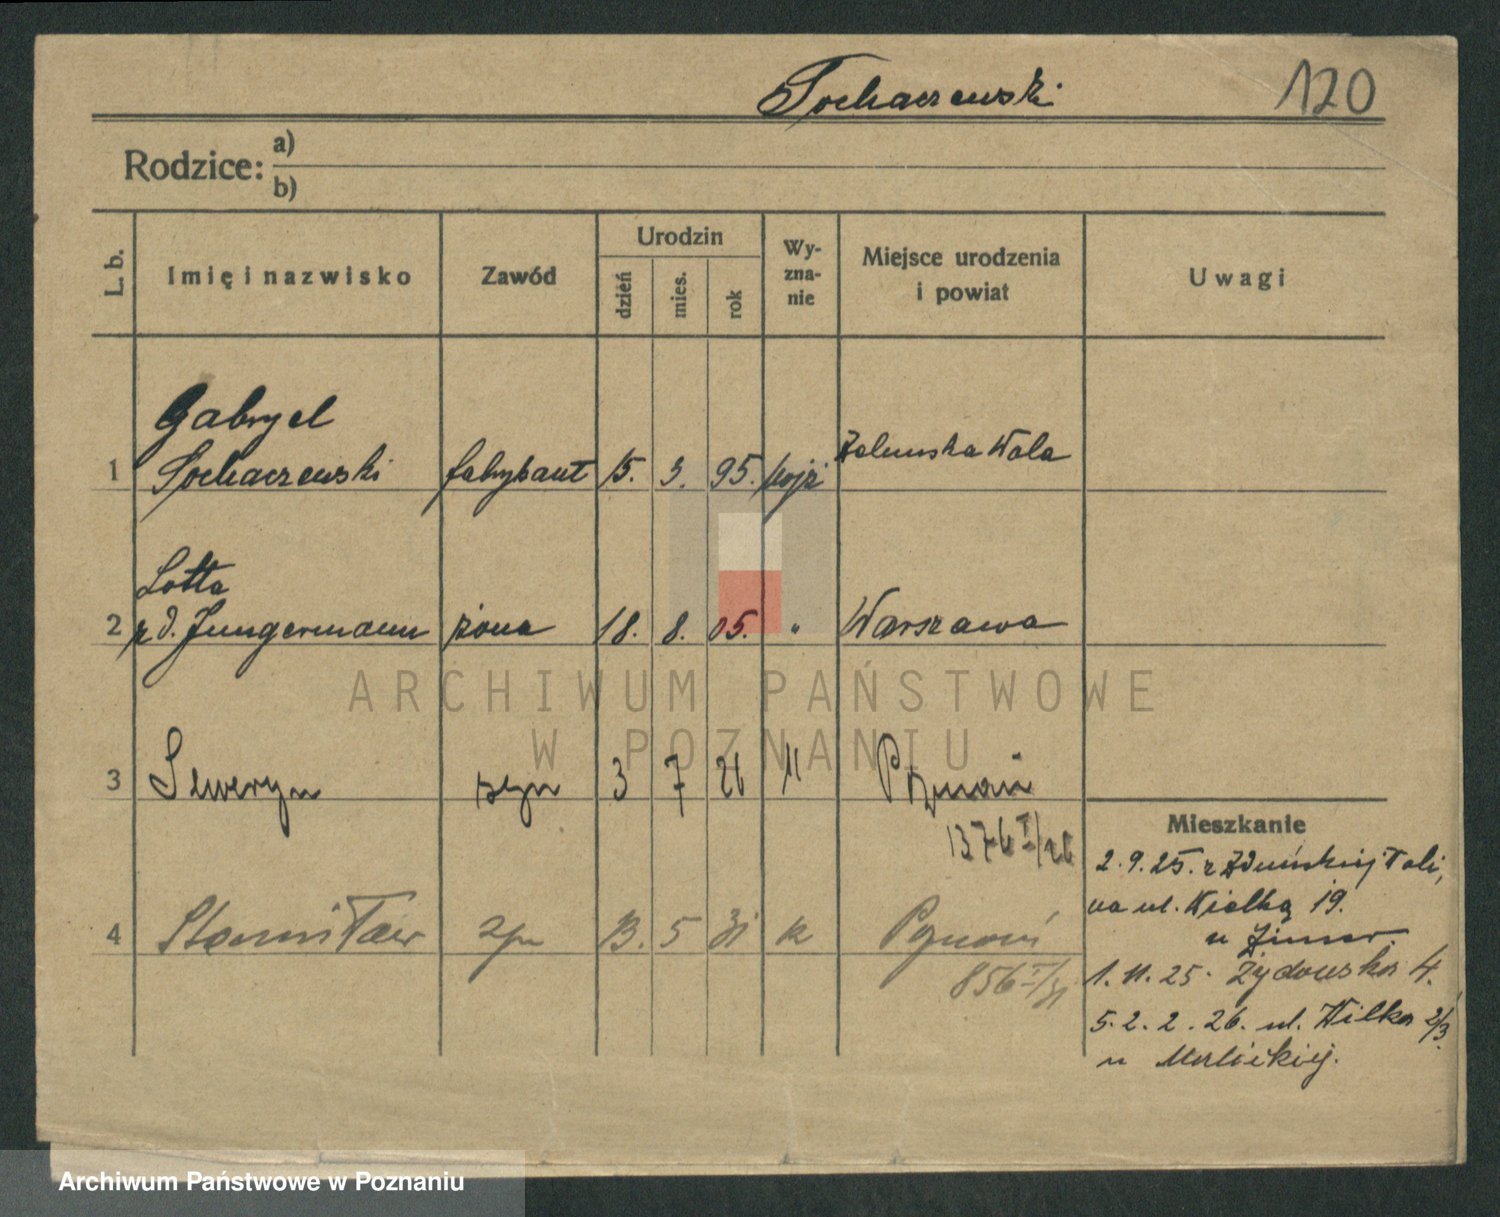 Sochaczewski 120
Rodzice: a)
b)
L. b. Imię i nazwisko Zawód Urodzin dzień mies. rok Wyznanie Miejsce urodzenia i powiat Uwagi
1 Gabryel
Sochaczewski fabrykant 15. 3. 95. mojż Zduńska Wola
2 Lotta
z d. Jungermann żona 18. 8. 05. " Warszawa
ARCHIWUM PAŃSTWOWE
W POZNANIU
3 Seweryn syn 3 7 26 " Poznań
1376 I/26
4 Stanisław syn 13. 5 31 Poznań
856 I/31
Mieszkanie
2.9.25. z Zduńskiej Woli,
na ul. Wielką 19.
u
1.11.25. Żydowska 4.
5.2.2.26. ul. Wielka 2/3.
u
Archiwum Państwowe w Poznaniu